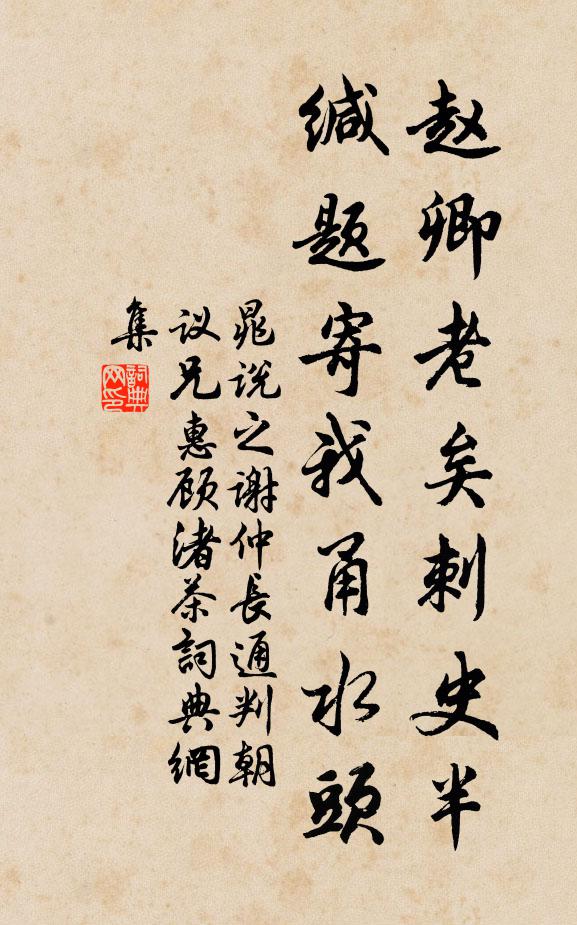 赵卿老矣刺史半
缄题寄我甬水頭
晁说之谢仲長通判朝
议兄惠顾渚茶詞典網
集
詞典網印